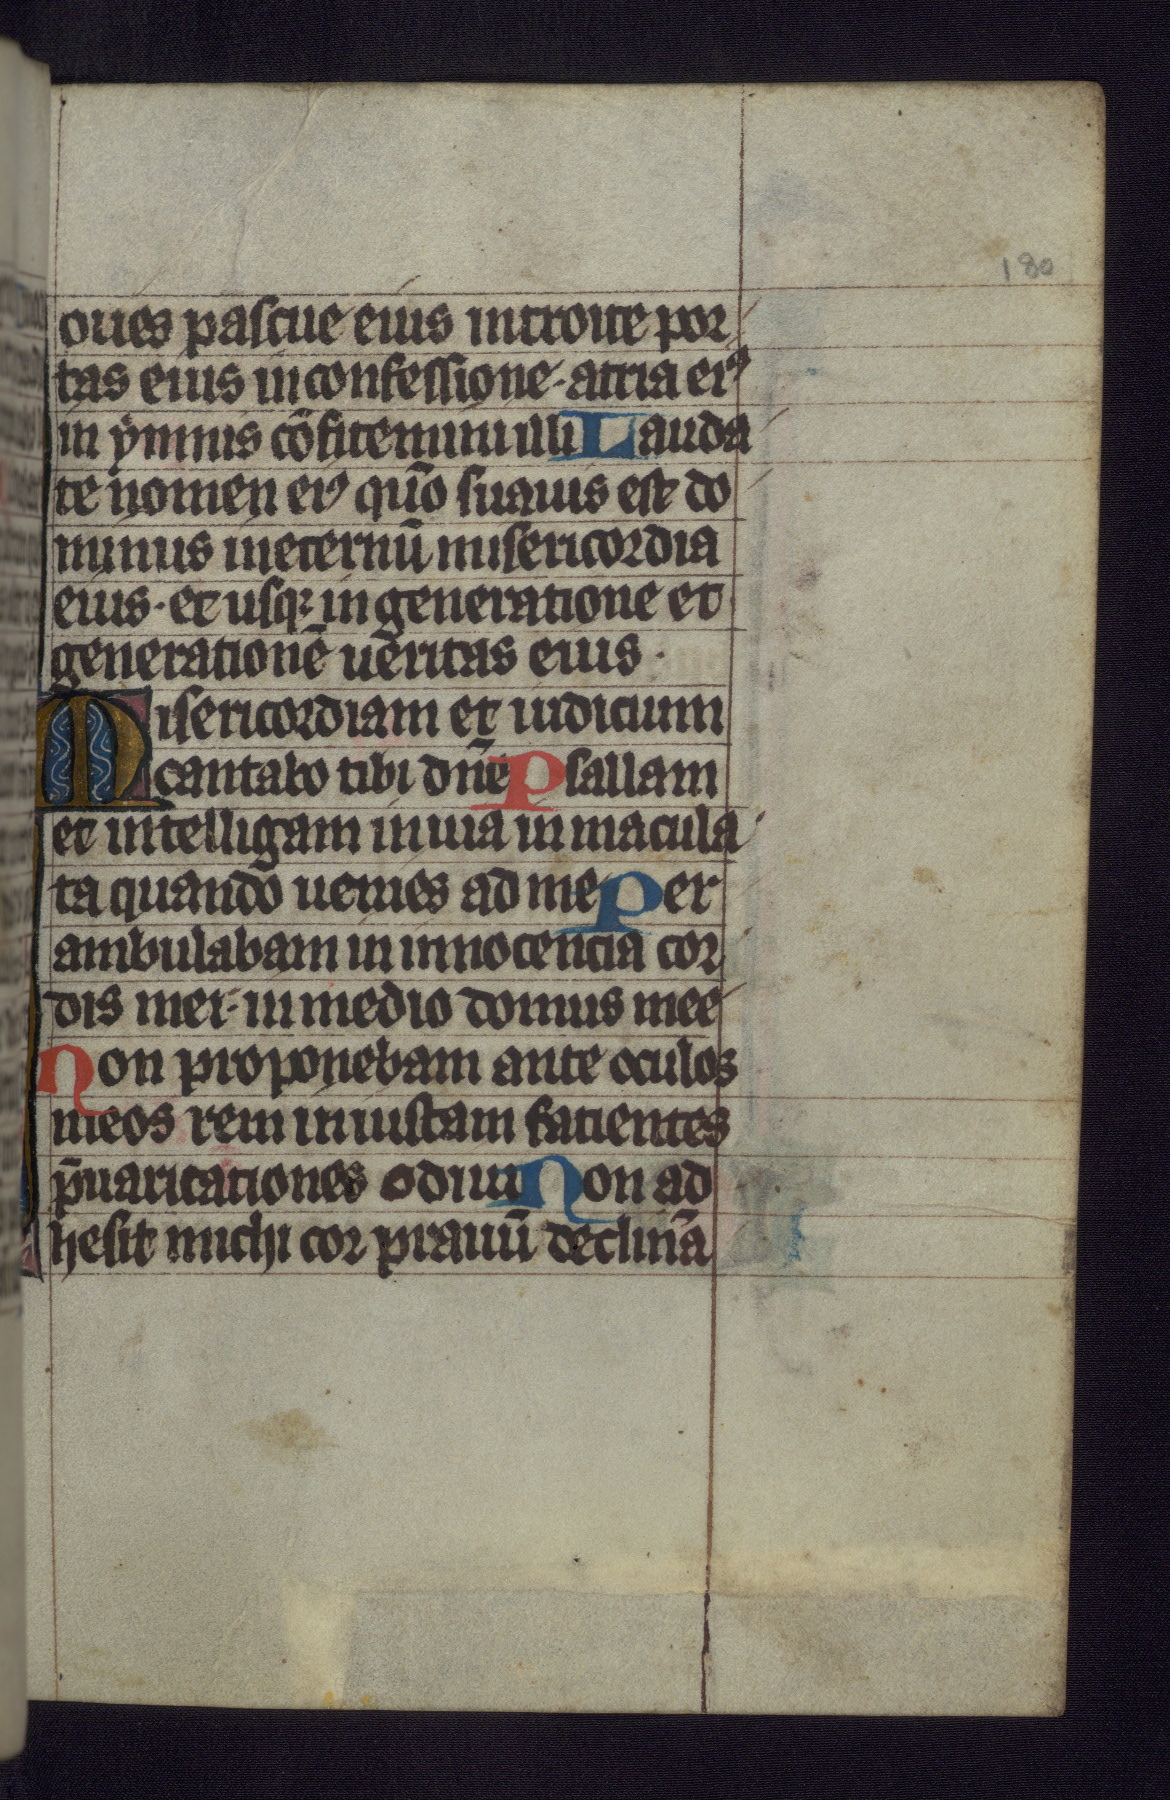 180
oues pascue eius introite por
tas eius in confessione. atria ei⁹
in ẏmnis cōfitemini illi Lauda
te nomen ei⁹ qūo suauis est do
minus in eternū misericordia
eius. et usqꝫ in generatione et
generationē ueritas eius.
Misericordiam et iudicium
cantabo tibi dn̄e Psallam
et intelligam in uia in macula
ta quando uenies ad me Per
ambulabam in innocencia cor
dis mei. in medio domus mee
Non proponebam ante oculos
meos rem iniustam facientes
p̄uaricationes odiui Non ad
hesit michi cor prauū declinā